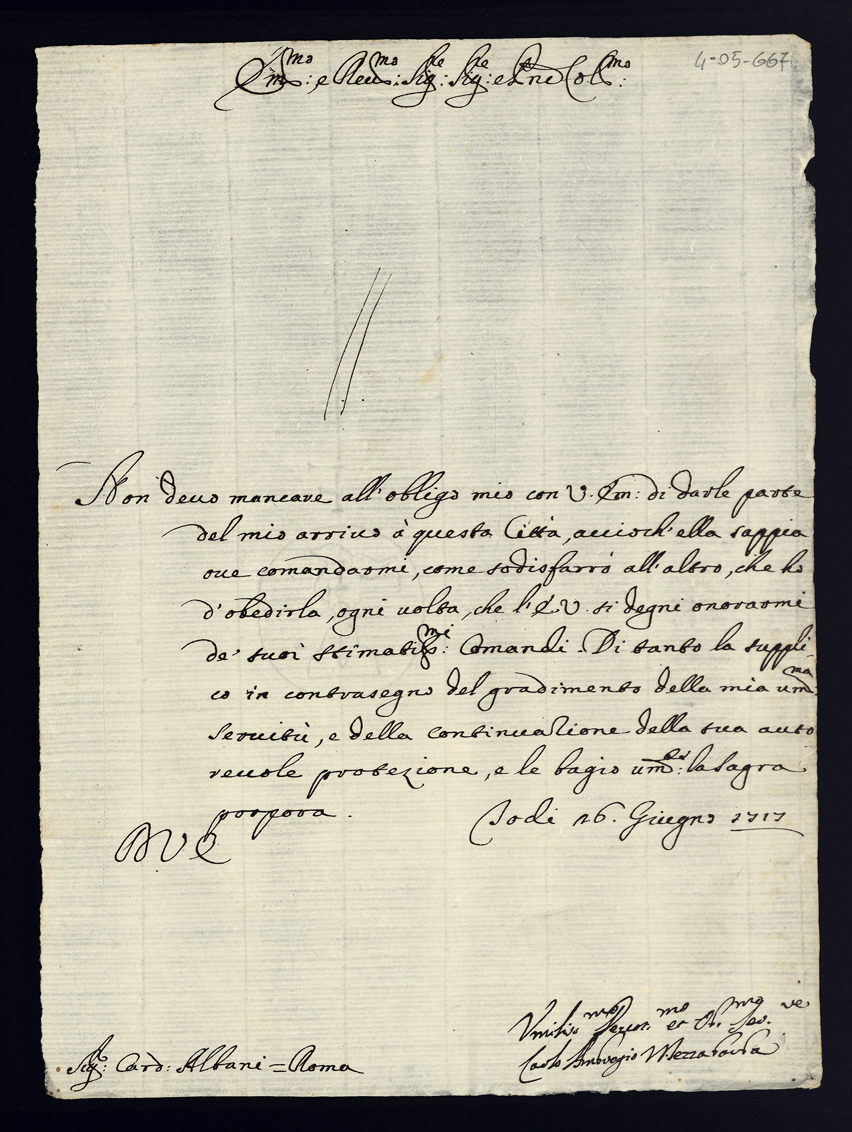 Em.mo: e Reu.mo: Sig.re: Sig.re: e Pne Col.mo:
4-05-667
Non deuo mancare all'obligo mio con V. Em: di darle parte
del mio arriuo à questa Città, accioch'ella sappia
oue comandarmi, come sodisfarrò all'altro, che hò
d'obedirla, ogni uolta, che l'E V. si degni onorarmi
de' suoi stimatiss.mi: Comandi. Di tanto la suppli-
co in contrasegno del gradimento della mia um.ma
Seruitù, e della continuazione della sua auto
reuole protezione, e le bagio um.te: la Sagra
porpora.
Lodi 16. Giugno 1717
D V E
Vmilis.mo Deuot.mo et Ob.mo Ser.ve
Carlo Ambrogio Mezzabarba
Sig.r Card: Albani = Roma